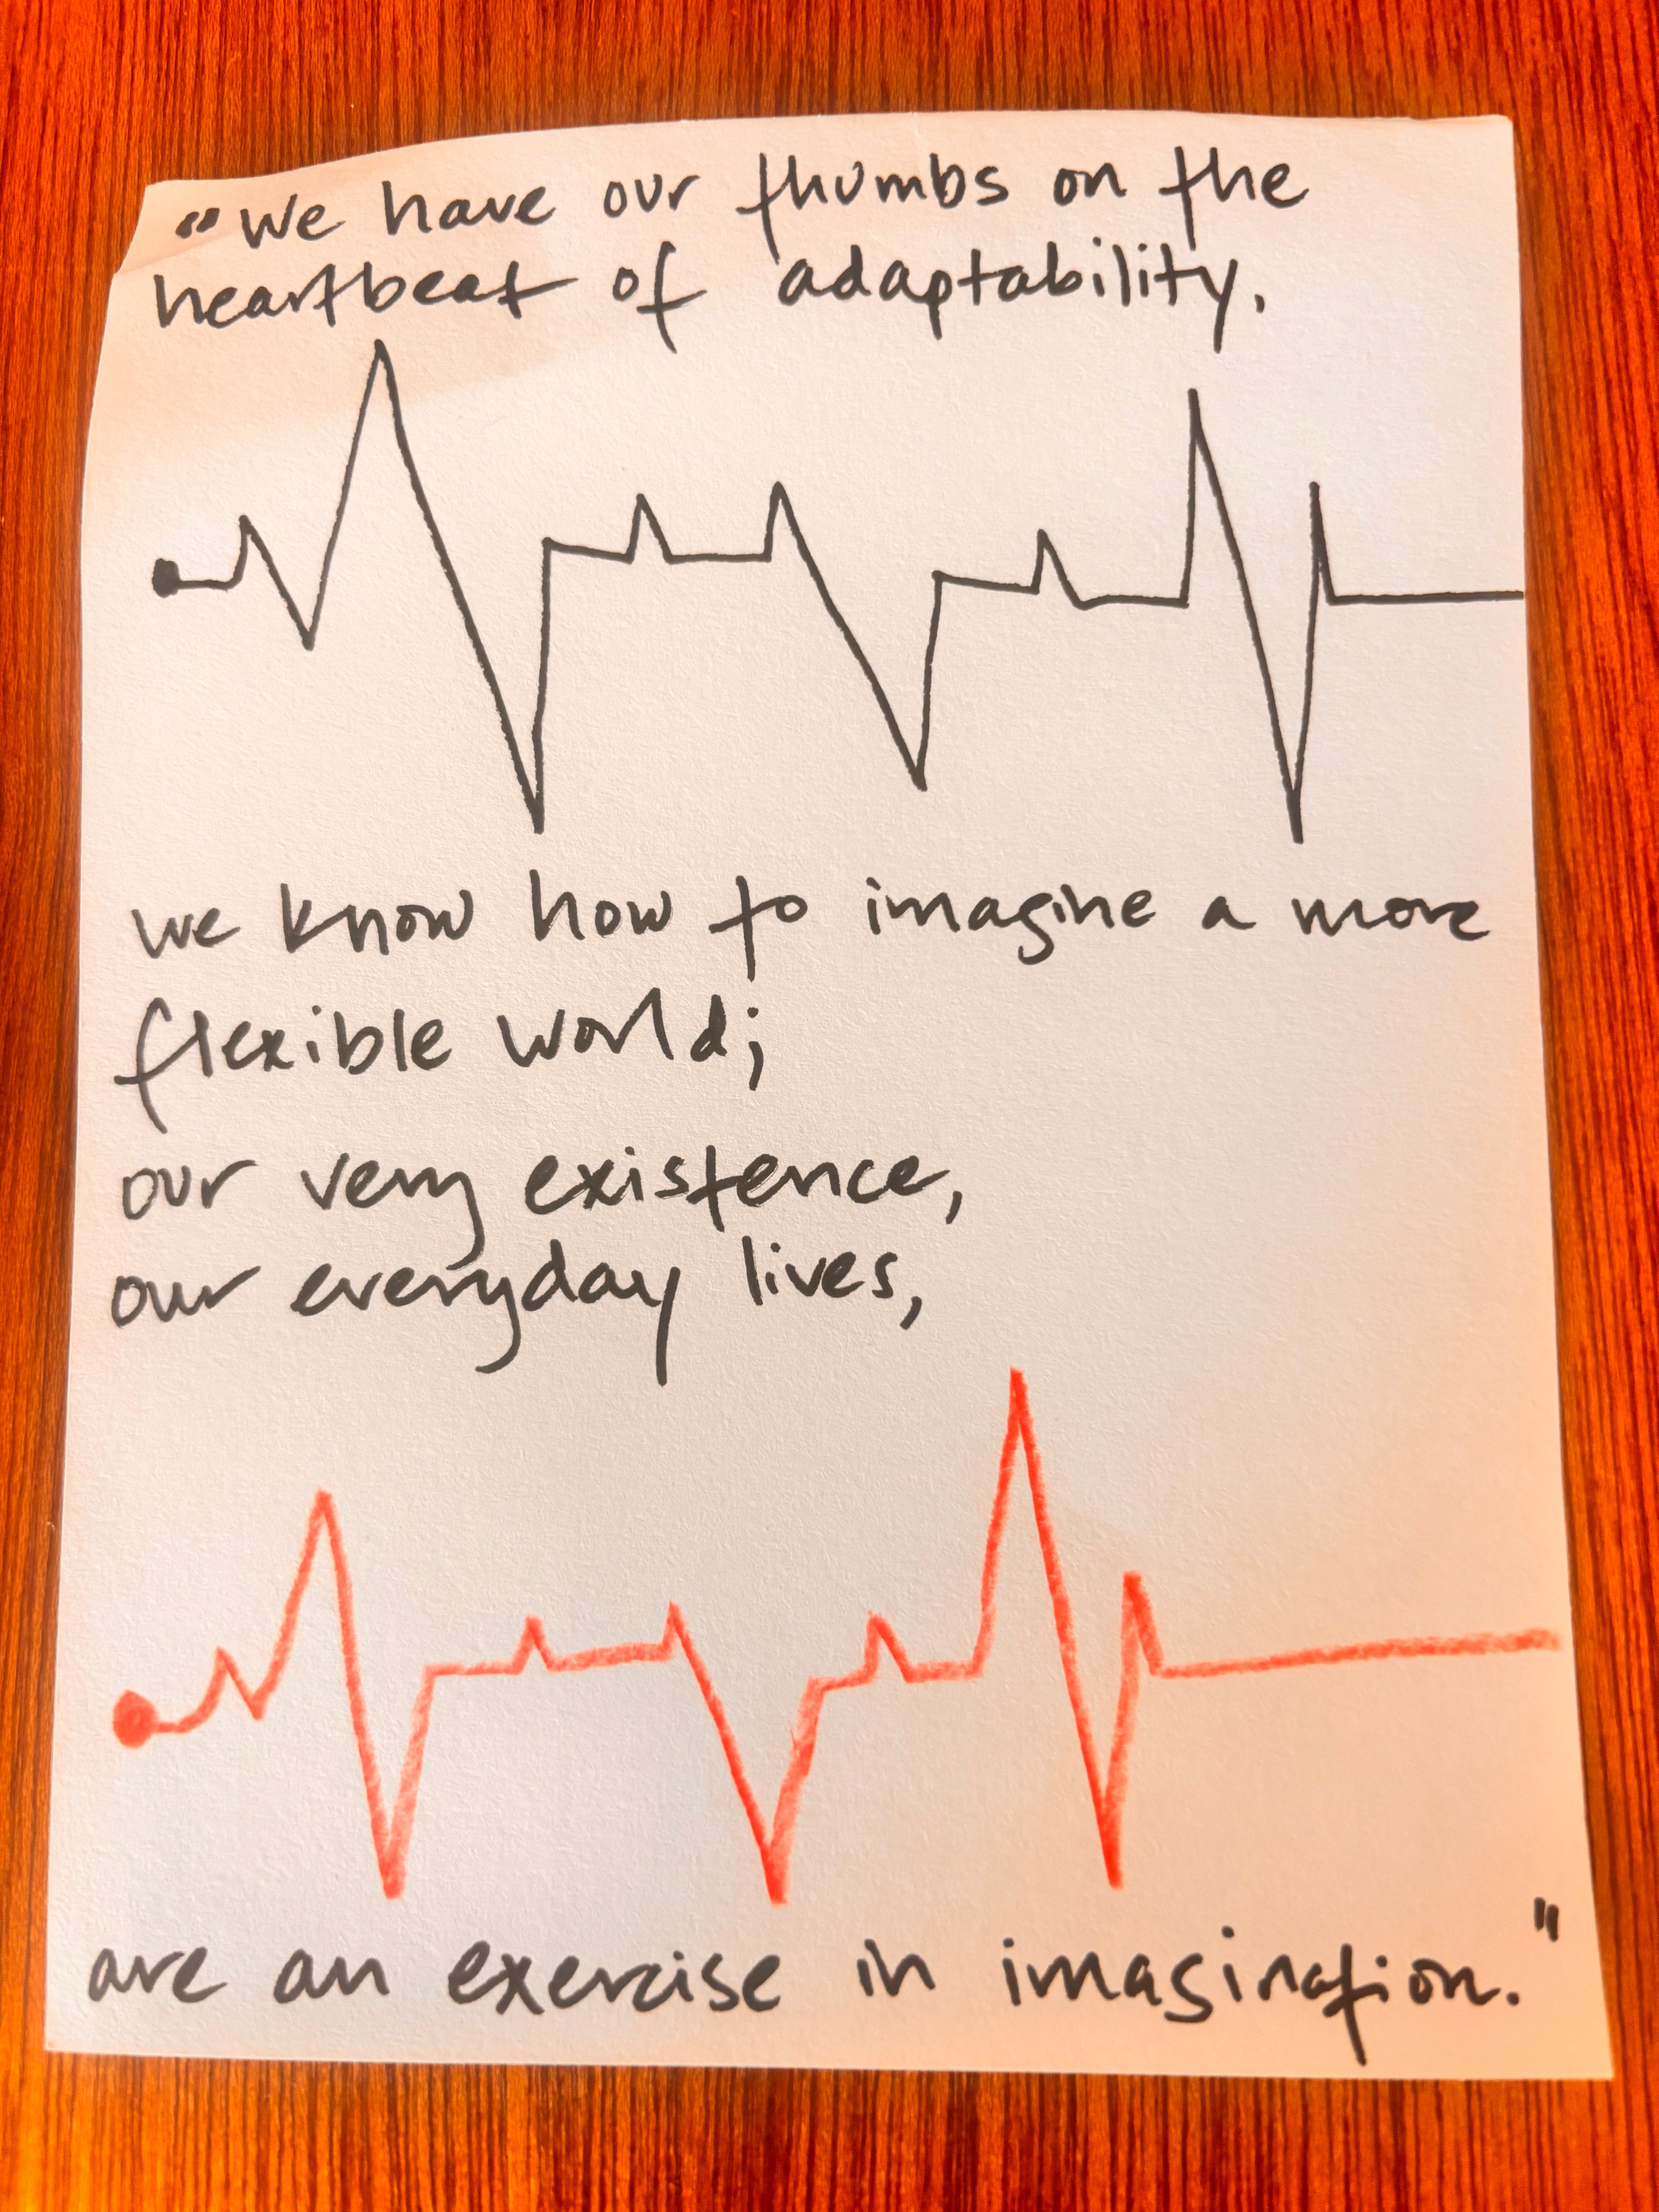 "We have our thumbs on the
heartbeat of adaptability.
we know how to imagine a more
flexible world;
our very existence,
our everyday lives,
are an exercise in imagination."